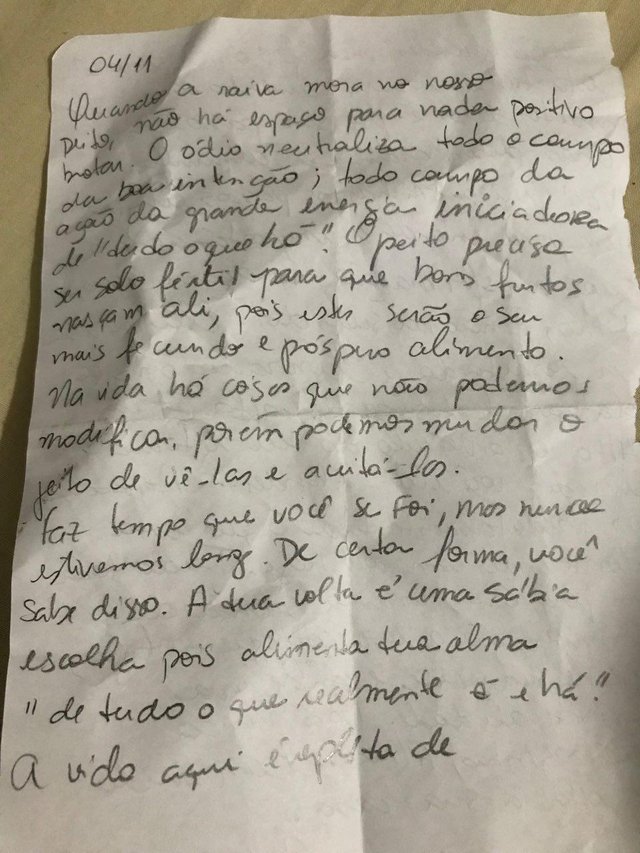 04/11
Quando a raiva mora no nosso
peito, não há espaço para nada positivo
brotar. O ódio neutraliza todo o campo
da boa intenção; todo campo da
ação da grande energia iniciadora
de "tudo o que há". O peito precisa
ser solo fértil para que bons frutos
nasçam ali, pois estes serão o seu
mais fecundo e próspero alimento.
Na vida há coisas que não podemos
modificar, porém podemos mudar o
jeito de vê-las e aceitá-las.
Faz tempo que você se foi, mas nunca
estivemos longe. De certa forma, você
sabe disso. A tua volta é uma sábia
escolha pois alimenta tua alma
"de tudo o que realmente é e há."
A vida aqui é repleta de